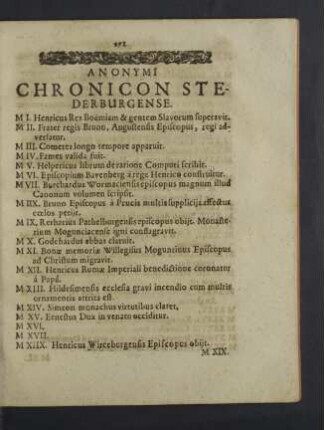 ANONYMI
CHRONICON STE-
DERBURGENSE.
M I. Henricus Rex Boëmiam & gentem Slavorum superavit.
M II. Frater regis Bruno, Augustensis Episcopus, regi ad-
versatur.
M III. Cometes longo tempore apparuit.
M IV. Fames valida fuit.
M V. Helpericus librum de ratione Compoti scribit.
M VI. Episcopium Bavenberg à rege Henrico construitur.
M VII. Burchardus Wormaciensis episcopus magnum illud
Canonum volumen scripsit.
M IIX. Bruno Episcopus à Prucis multis suppliciis affectus
cœlos petijt.
M IX. Retharius Pathelburgensis episcopus obijt. Monaste-
rium Moguntiacense igni conflagravit.
M X. Godehardus abbas claruit.
M XI. Bonæ memoriæ Willegisus Moguntinus Episcopus
ad Christum migravit.
M XII. Henricus Romæ Imperiali benedictione coronatur
á Papâ.
M XIII. Hildesimensis ecclesia gravi incendio cum multis
ornamentis attrita est.
M XIV. Simeon monachus virtutibus claret.
M XV. Ernestus Dux in venatu occiditur.
M XVI.
M XVII.
M XIIX. Henricus Wirceburgensis Episcopus obijt.
M XIX.